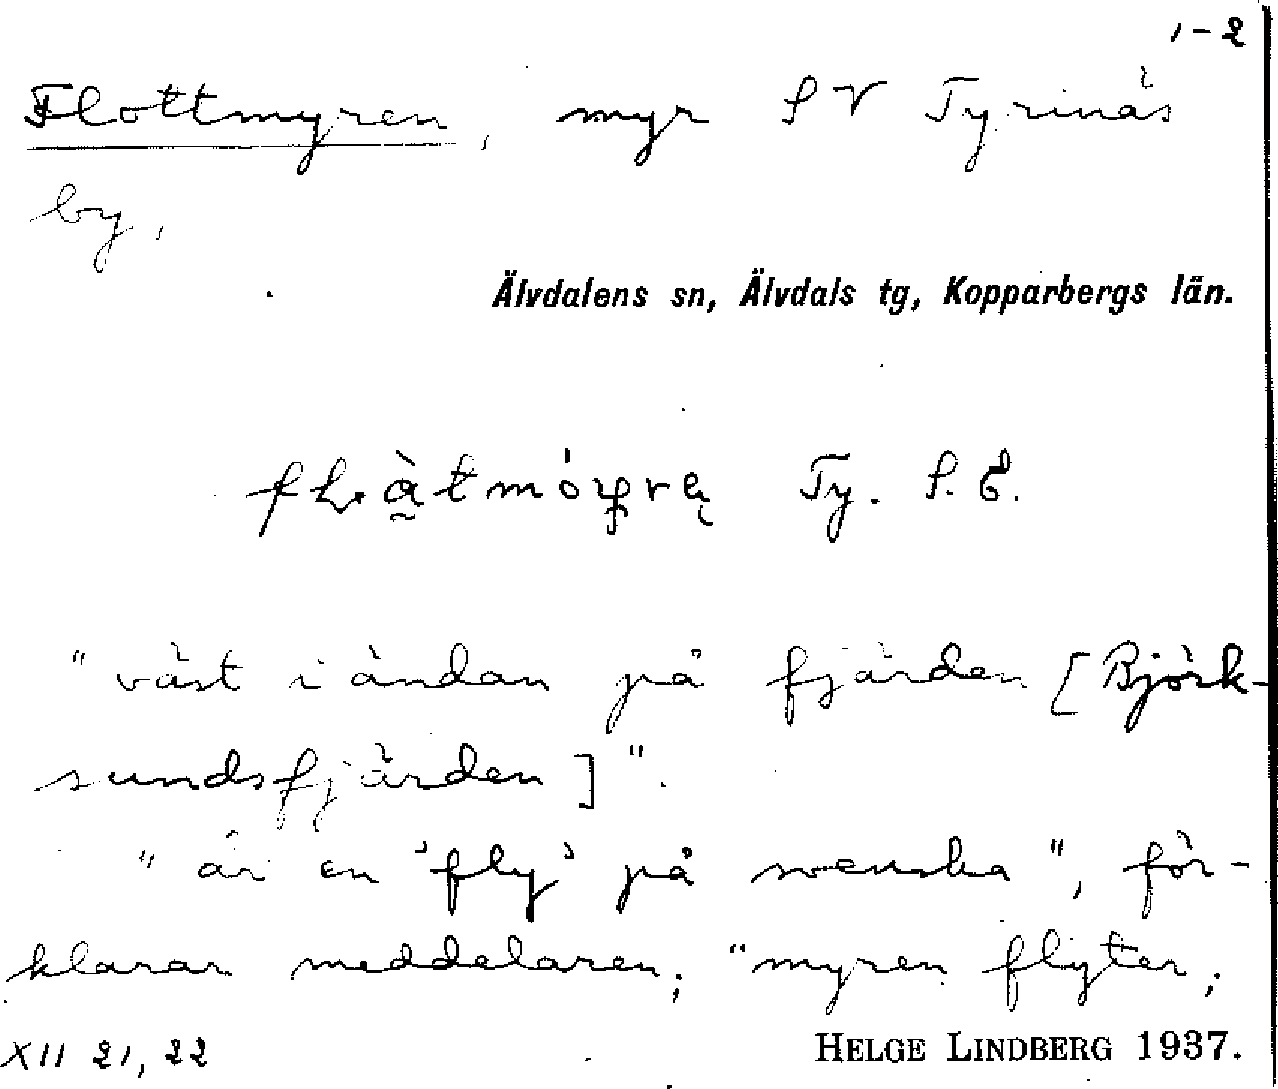 1-2
Flottmyren, myr SV Tyrinäs
by,
Älvdalens sn, Älvdals tg, Kopparbergs län.
Ty. S. E.
"väst i ändan på fjärden [Björk-
sundsfjärden]".
"är en 'fly' på svenska", för-
klarar meddelaren; "myren flyter;
XII 21, 22
HELGE LINDBERG 1937.